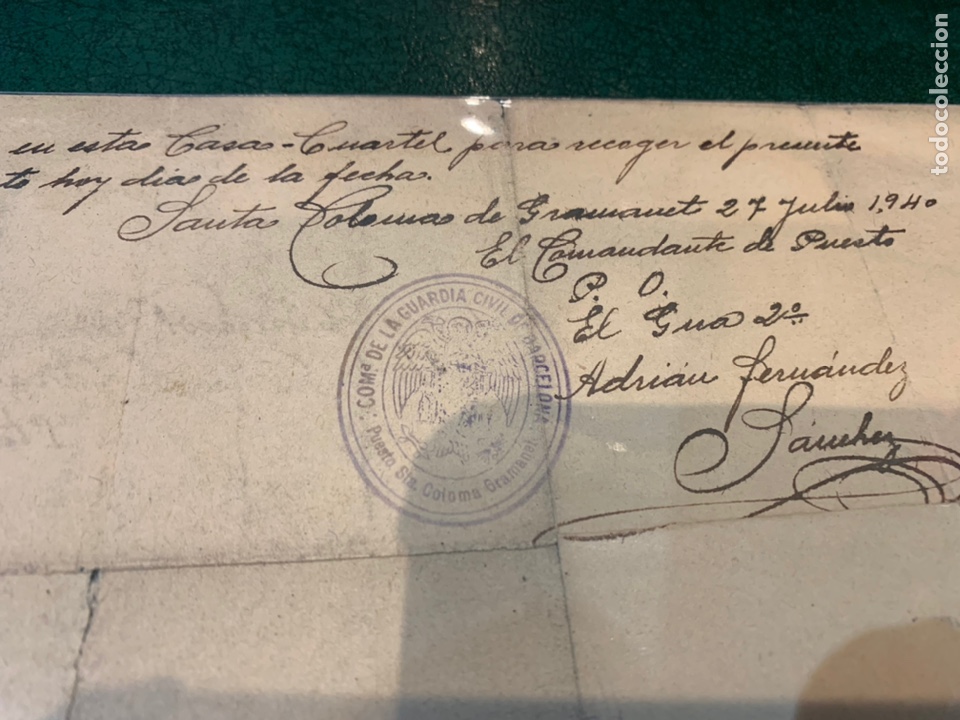 en esta Casa-Cuartel para recoger el presente
to hoy dia de la fecha.
Santa Coloma de Gramanet 27 Julio 1,940
El Comandante de Puesto
P. O.
El Gua 2º
Adrián Fernández
Sánchez
COMª DE LA GUARDIA CIVIL DE BARCELONA
Puesto Sta. Coloma Gramanet
todocoleccion